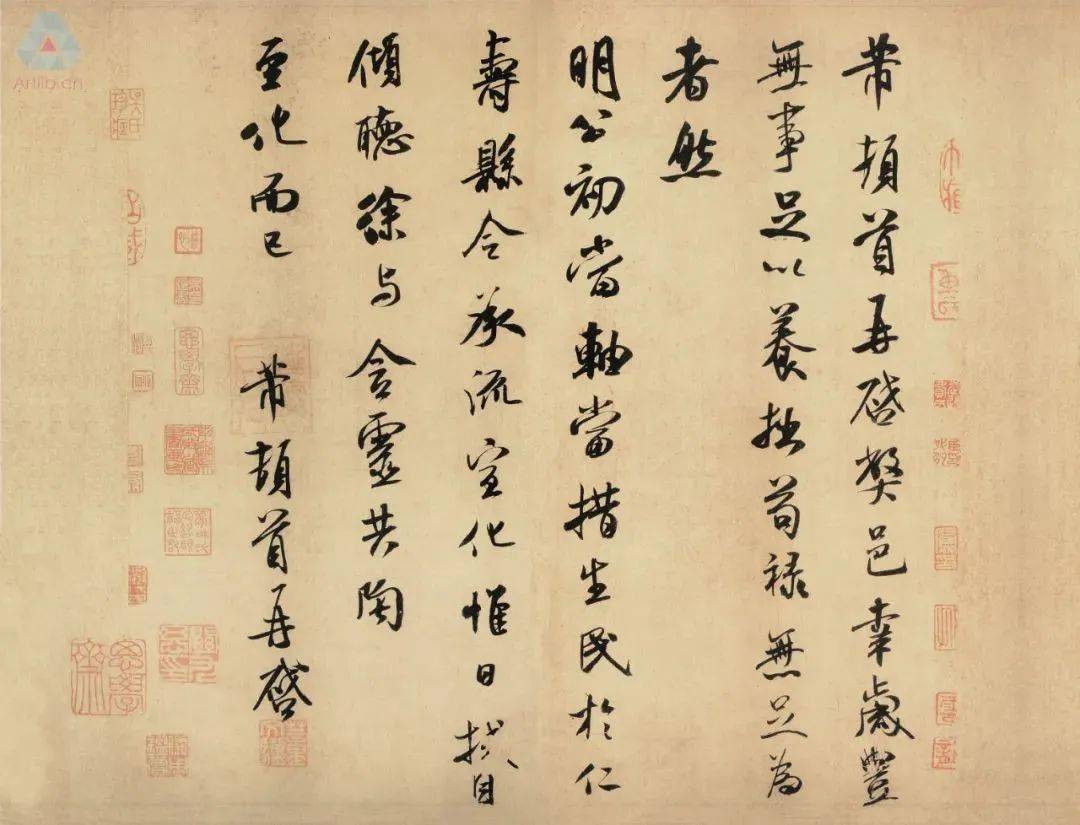 芾頓首再啓弊邑幸歲豐
無事足以養拙苟禄無足爲
者然
明公初當軸當措生民於仁
壽縣令承流宣化惟日拭目
傾聽徐与含靈共陶
至化而已　芾頓首再啓
Artlib.cn